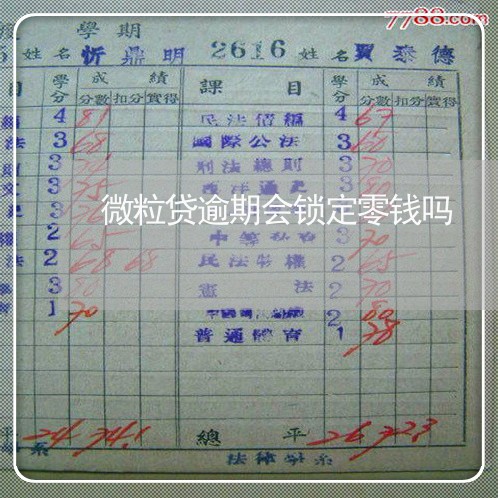 7788.com
學期
姓名 忻鼎明 2616 姓名 賈泰德
目 學分 成績 課目 學分 成績
分數 扣分 實得 分數 扣分 實得
4 81 民法債編 4 67
法 3 68 國際公法 3 60
3 刑法總則 3 70
3 75 西洋通史 3 80
微粒贷逾期会锁定零钱吗
2 65 3 70
法 2 68 68 民法物權 2 65
3 80 憲法 2 70
1 70 2 80
普通體育 1 78
平 24 74.1 總平 26 72.3
系 法律學系